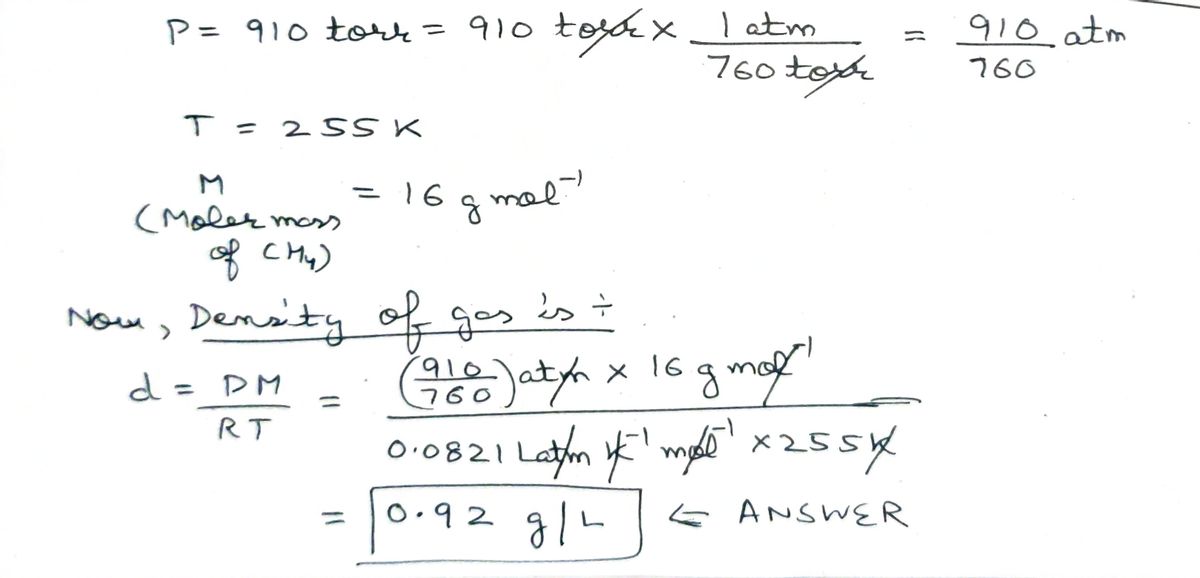 P = 910 torr = 910 torr x 1 atm / 760 torr = 910 / 760 atm
T = 255 K
M (Molar mass of CH4) = 16 g mol-1
Now, Density of gas is ÷
d = DM / RT = (910 / 760) atm x 16 g mol-1 / 0.0821 L atm K-1 mol-1 x 255 K
= 0.92 g/L ⇐ ANSWER